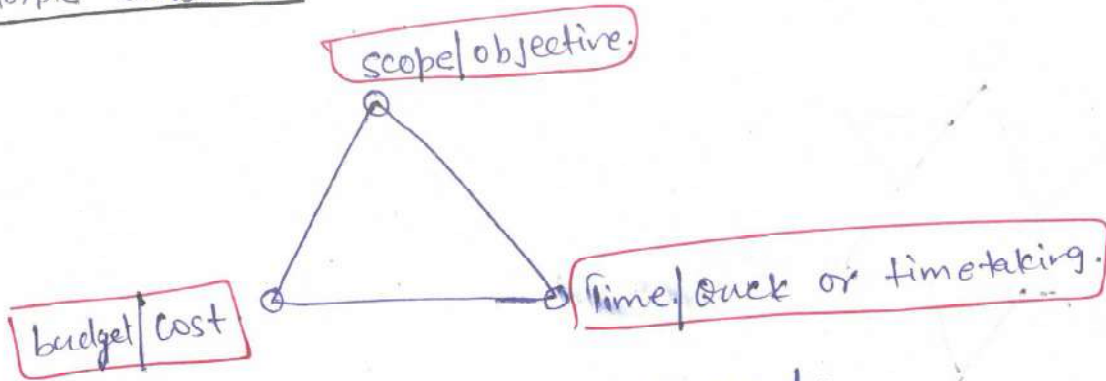 scope/objective.
budget/cost
Time/Quck or timetaking.